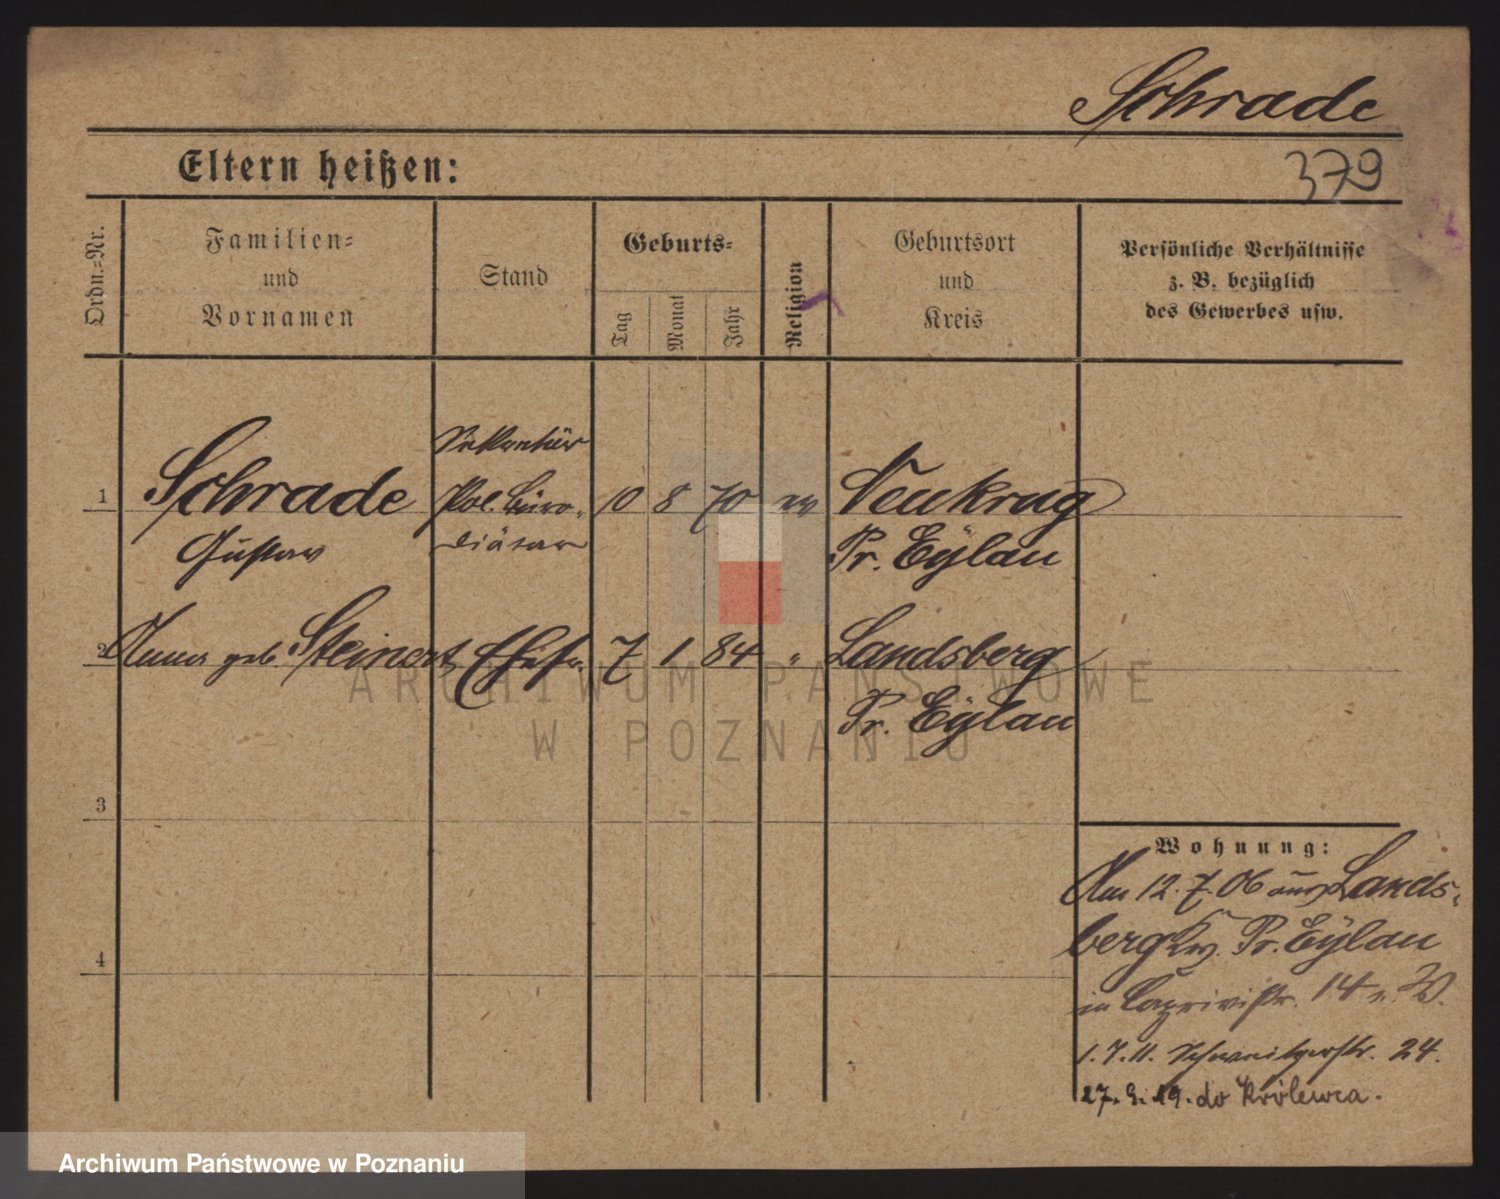 Schrade
379
Eltern heißen:
Ordn.-Nr.
Familien-
und
Vornamen
Stand
Geburts-
Tag
Monat
Jahr
Religion
Geburtsort
und
Kreis
Persönliche Verhältnisse
z. B. bezüglich
des Gewerbes usw.
1
Schrade
Gustav
Sekretär
Pol. Büro-
diätar
10 8 70 ev
Neukrug
Pr. Eylau
2
Anna geb. Steinert Ehefr. 7 1 84 "
Landsberg
Pr. Eylau
3
4
Wohnung:
Am 12.7.06 aus Lands-
berg Kr. Pr. Eylau
in Caprivistr. 14 n. W.
1.7.11. 24.
27.9.19. do Królewca.
ARCHIWUM PAŃSTWOWE
W POZNANIU
Archiwum Państwowe w Poznaniu